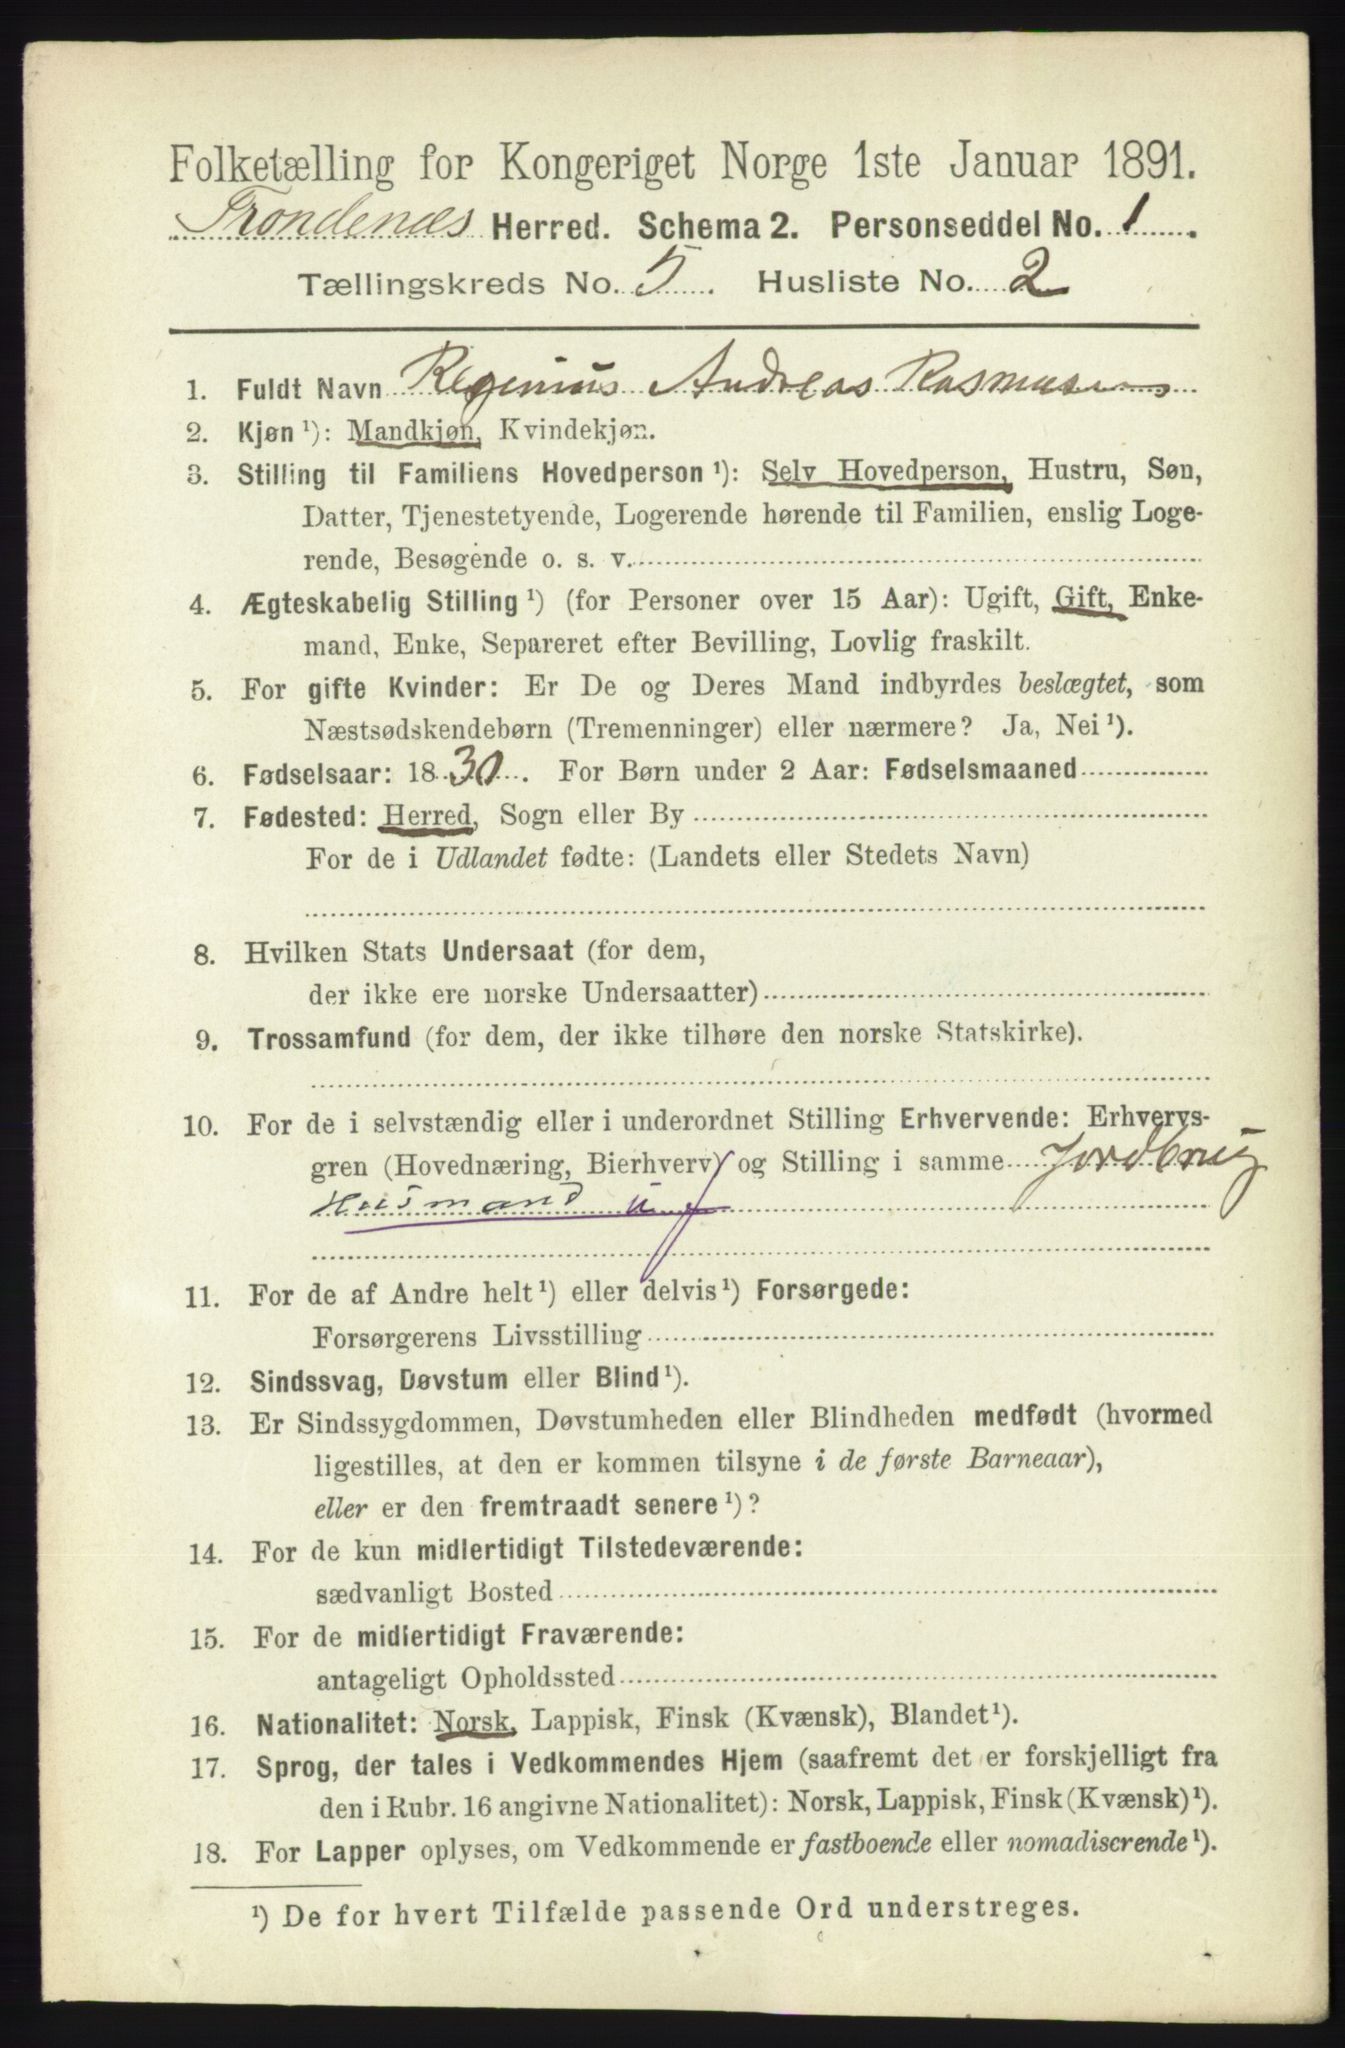 Folketælling for Kongeriget Norge 1ste Januar 1891.
Trondenæs Herred. Schema 2. Personseddel No. 1.
Tællingskreds No. 5. Husliste No. 2
1. Fuldt Navn Reginius Andreas Rasmusen
2. Kjøn ¹): Mandkjøn, Kvindekjøn.
3. Stilling til Familiens Hovedperson ¹): Selv Hovedperson, Hustru, Søn,
Datter, Tjenestetyende, Logerende hørende til Familien, enslig Loge-
rende, Besøgende o. s. v.
4. Ægteskabelig Stilling ¹) (for Personer over 15 Aar): Ugift, Gift, Enke-
mand, Enke, Separeret efter Bevilling, Lovlig fraskilt.
5. For gifte Kvinder: Er De og Deres Mand indbyrdes beslægtet, som
Næstsødskendebørn (Tremenninger) eller nærmere? Ja, Nei ¹).
6. Fødselsaar: 1830. For Børn under 2 Aar: Fødselsmaaned
7. Fødested: Herred, Sogn eller By
For de i Udlandet fødte: (Landets eller Stedets Navn)
8. Hvilken Stats Undersaat (for dem,
der ikke ere norske Undersaatter)
9. Trossamfund (for dem, der ikke tilhøre den norske Statskirke).
10. For de i selvstændig eller i underordnet Stilling Erhvervende: Erhvervs-
gren (Hovednæring, Bierhverv) og Stilling i samme Jordbrug
Husmand
11. For de af Andre helt ¹) eller delvis ¹) Forsørgede:
Forsørgerens Livsstilling
12. Sindssvag, Døvstum eller Blind ¹).
13. Er Sindssygdommen, Døvstumheden eller Blindheden medfødt (hvormed
ligestilles, at den er kommen tilsyne i de første Barneaar),
eller er den fremtraadt senere ¹)?
14. For de kun midlertidigt Tilstedeværende:
sædvanligt Bosted
15. For de midlertidigt Fraværende:
antageligt Opholdssted
16. Nationalitet: Norsk, Lappisk, Finsk (Kvænsk), Blandet ¹).
17. Sprog, der tales i Vedkommendes Hjem (saafremt det er forskjelligt fra
den i Rubr. 16 angivne Nationalitet): Norsk, Lappisk, Finsk (Kvænsk) ¹).
18. For Lapper oplyses, om Vedkommende er fastboende eller nomadiserende ¹).
¹) De for hvert Tilfælde passende Ord understreges.